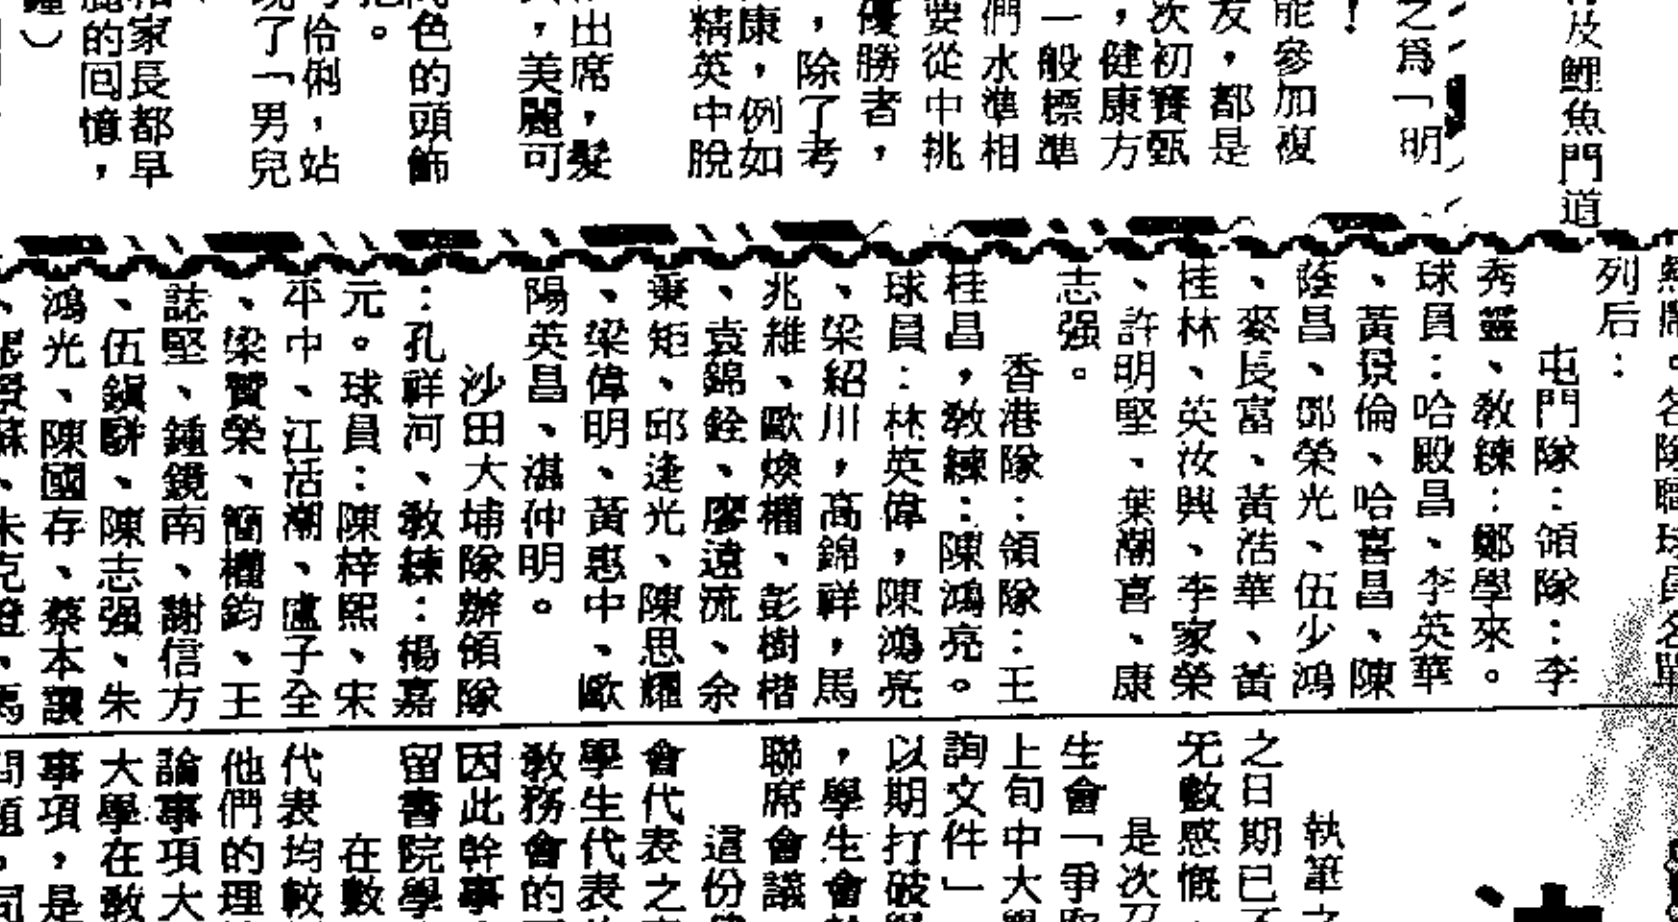 及鯉魚門道
之爲「明
！
能參加複
友，都是
次初賽甄
，健康方
一般標準
們水準相
要從中挑
優勝者，
，除了考
康，例如
精英中脫
出席，髮
，美麗可
色的頭飾
伶俐，站
了「男兒
家長都早
麗的回憶，
列后：
屯門隊：領隊：李
秀靈、敎練：鄭學來。
球員：哈殿昌、李英華
、黃景倫、哈喜昌、陳
蔭昌、鄧榮光、伍少鴻
、麥長富、黃浩華、黃
桂林、英汝興、李家榮
、許明堅、葉潮喜、康
志强。
香港隊：領隊：王
桂昌，敎練：陳鴻亮。
球員：林英偉，陳鴻亮
、梁紹川，高錦祥，馬
兆維、歐煥權、彭樹楷
、袁錦銓、廖遠流、余
秉矩、邱逢光、陳思耀
、梁偉明、黃惠中、歐
陽英昌、湛仲明。
沙田大埔隊辦領隊
：孔祥河、敎練：楊嘉
元。球員：陳梓熙、宋
平中、江活潮、盧子全
、梁贊榮、簡權鈞、王
誌堅、鍾鏡南、謝信方
、伍鎭駢、陳志强、朱
鴻光、陳國存、蔡本讓
執筆之
之日期已
无數感慨，
是次
生會「爭
上旬中大
詢文件」
以期打破
，學生會
聯席會議
這份
會代表之
學生代表
敎務會的
因此幹事
留書院學
在數
代表均較
他們的理
論事項大
大學在敎
事項，是
問題，同